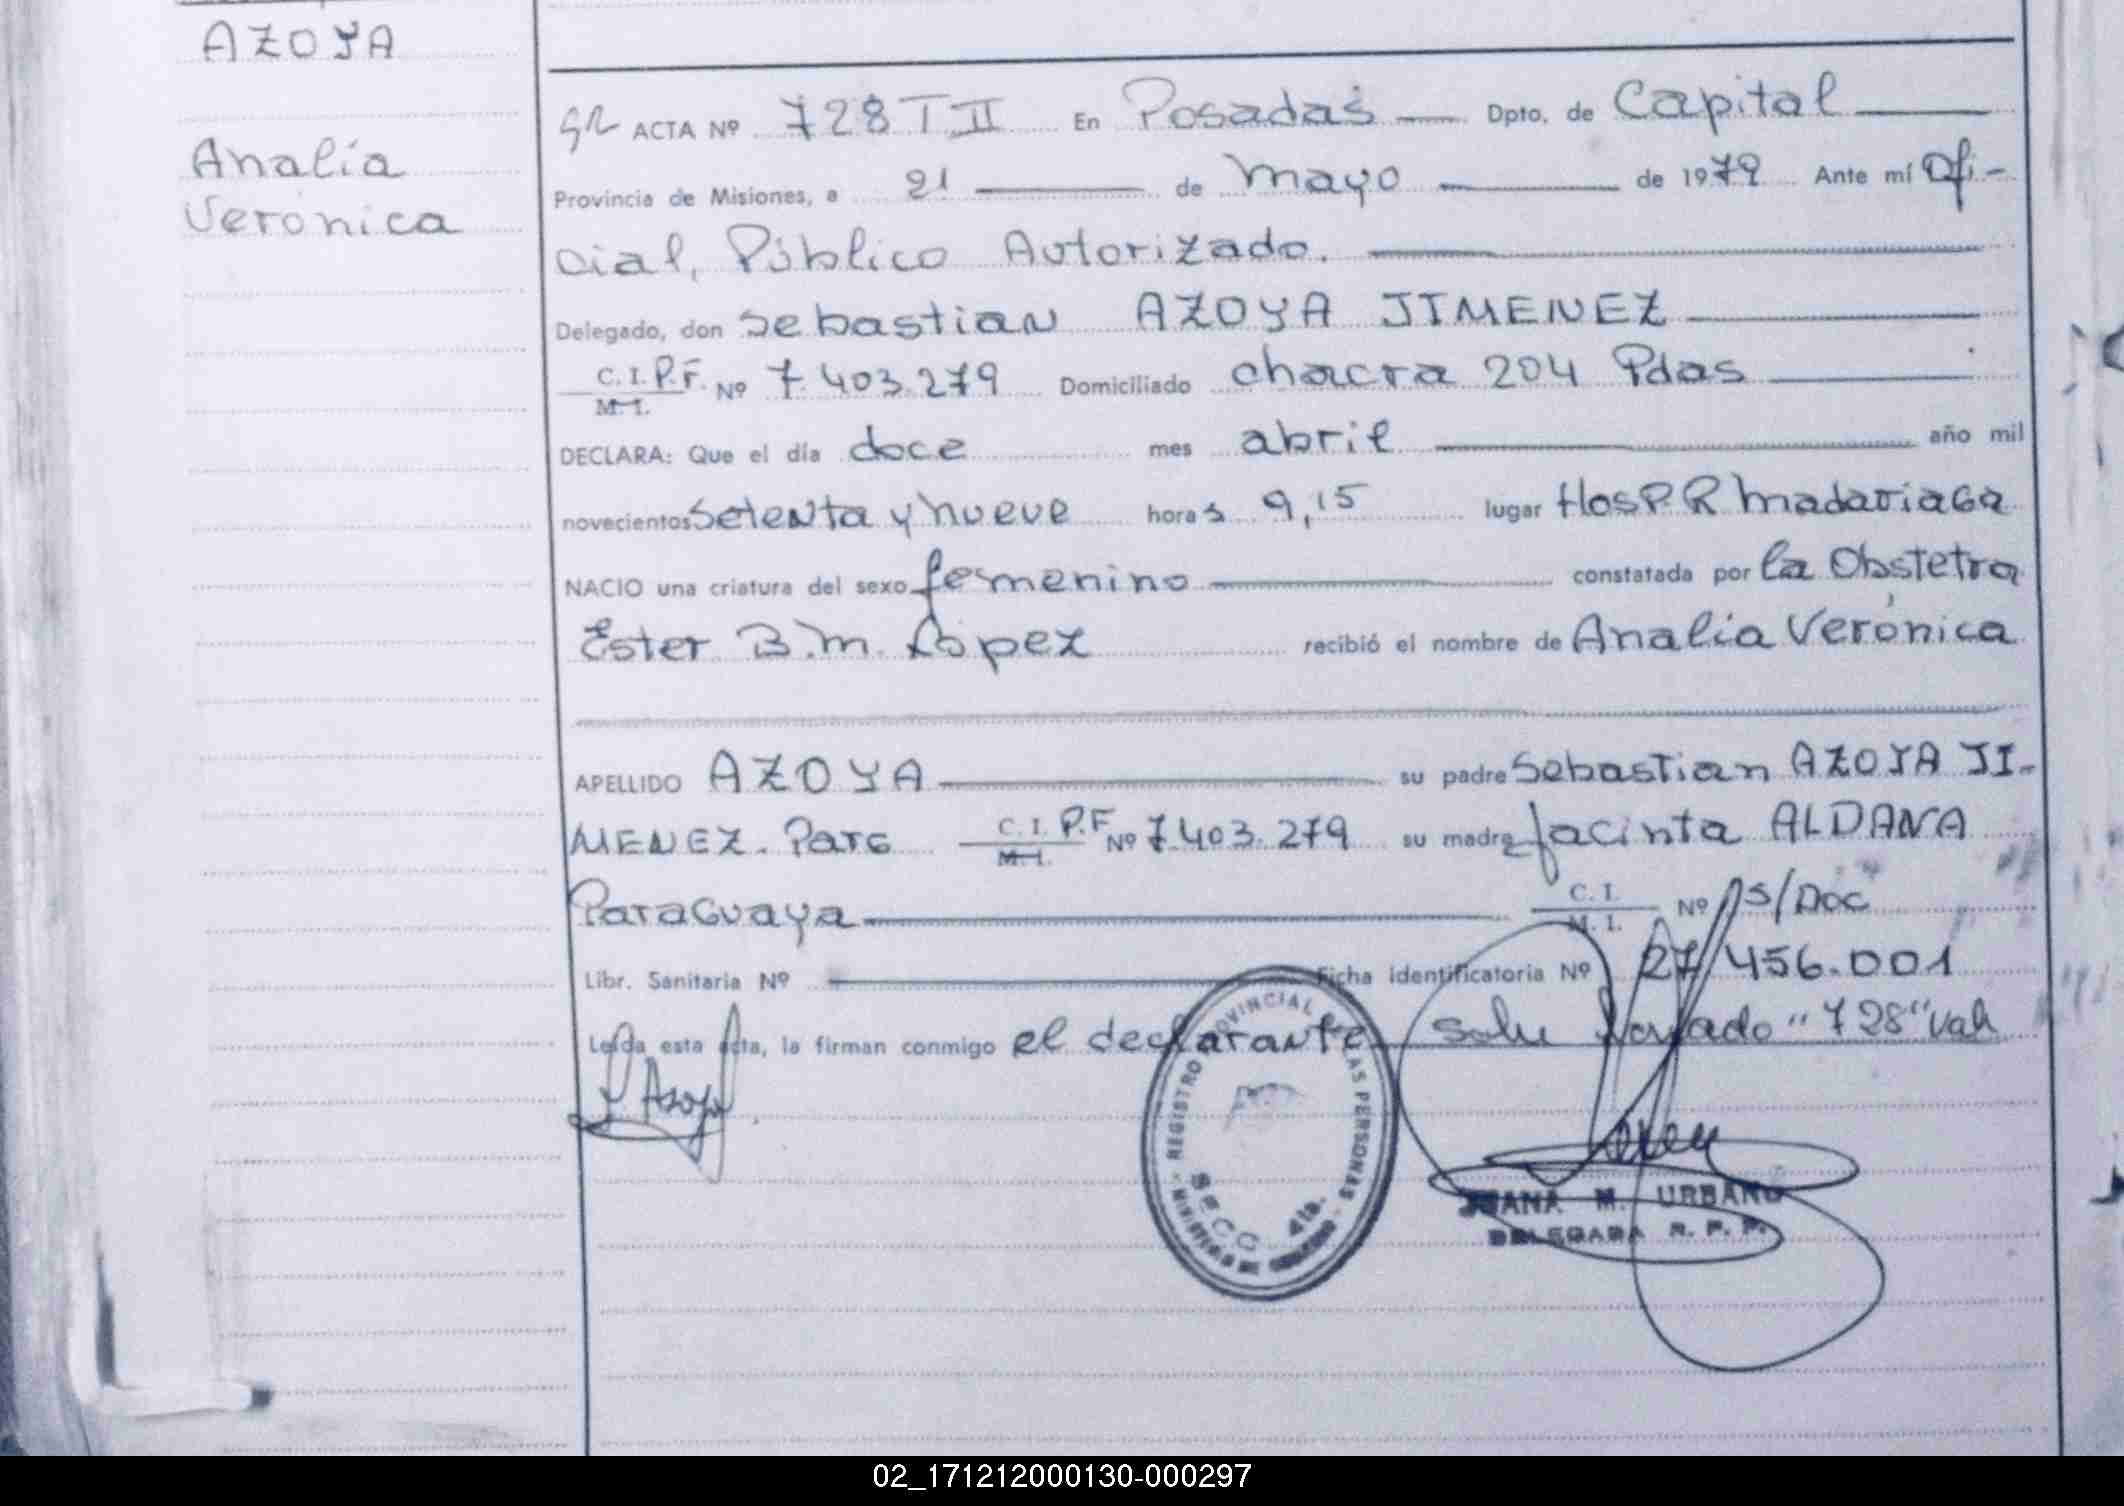 AZOYA
Analía
Verónica
ACTA Nº 728 T II En Posadas Dpto. de Capital
Provincia de Misiones, a 21 de mayo de 1979 Ante mí Ofi-
cial, Público Autorizado.
Delegado, don Sebastian AZOYA JIMENEZ
C. I. P.F. Nº 7.403.279 Domiciliado chacra 204 Pdas
M. I.
DECLARA: Que el día doce mes abril año mil
novecientos setenta y nueve horas 9,15 lugar Hosp. R Madariaga
NACIO una criatura del sexo femenino constatada por la Obstetra
Ester B.M. López recibió el nombre de Analía Verónica
APELLIDO AZOYA su padre Sebastian AZOYA JI-
MENEZ. Parg C. I. P.F. Nº 7.403.279 su madre Jacinta ALDANA
M. I.
Paraguaya C. I. Nº S/Doc
M. I.
Libr. Sanitaria Nº Ficha identificatoria Nº 27/456.001
Leída esta acta, la firman conmigo el declarante Sobre "728" Vale
Azoya
REGISTRO PROVINCIAL DE LAS PERSONAS
MINISTERIO DE GOBIERNO
SECC. 4ta.
JUANA M. URBANO
DELEGADA R. P. P.
02_171212000130-000297